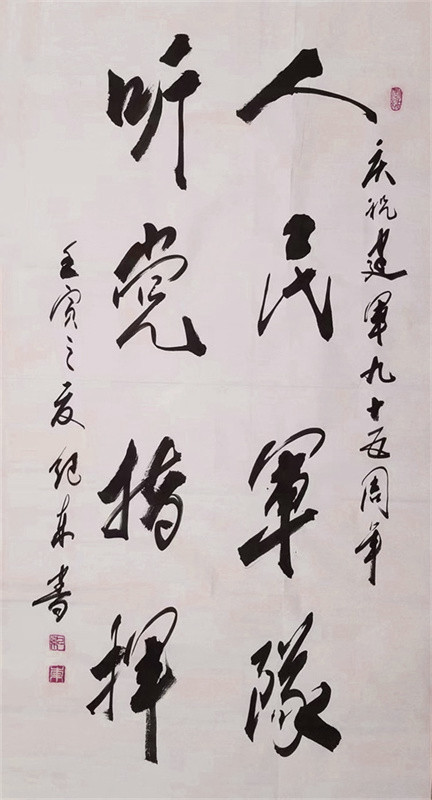 庆祝建軍九十五周年
人民軍隊
听党指揮
壬寅之夏纪东書